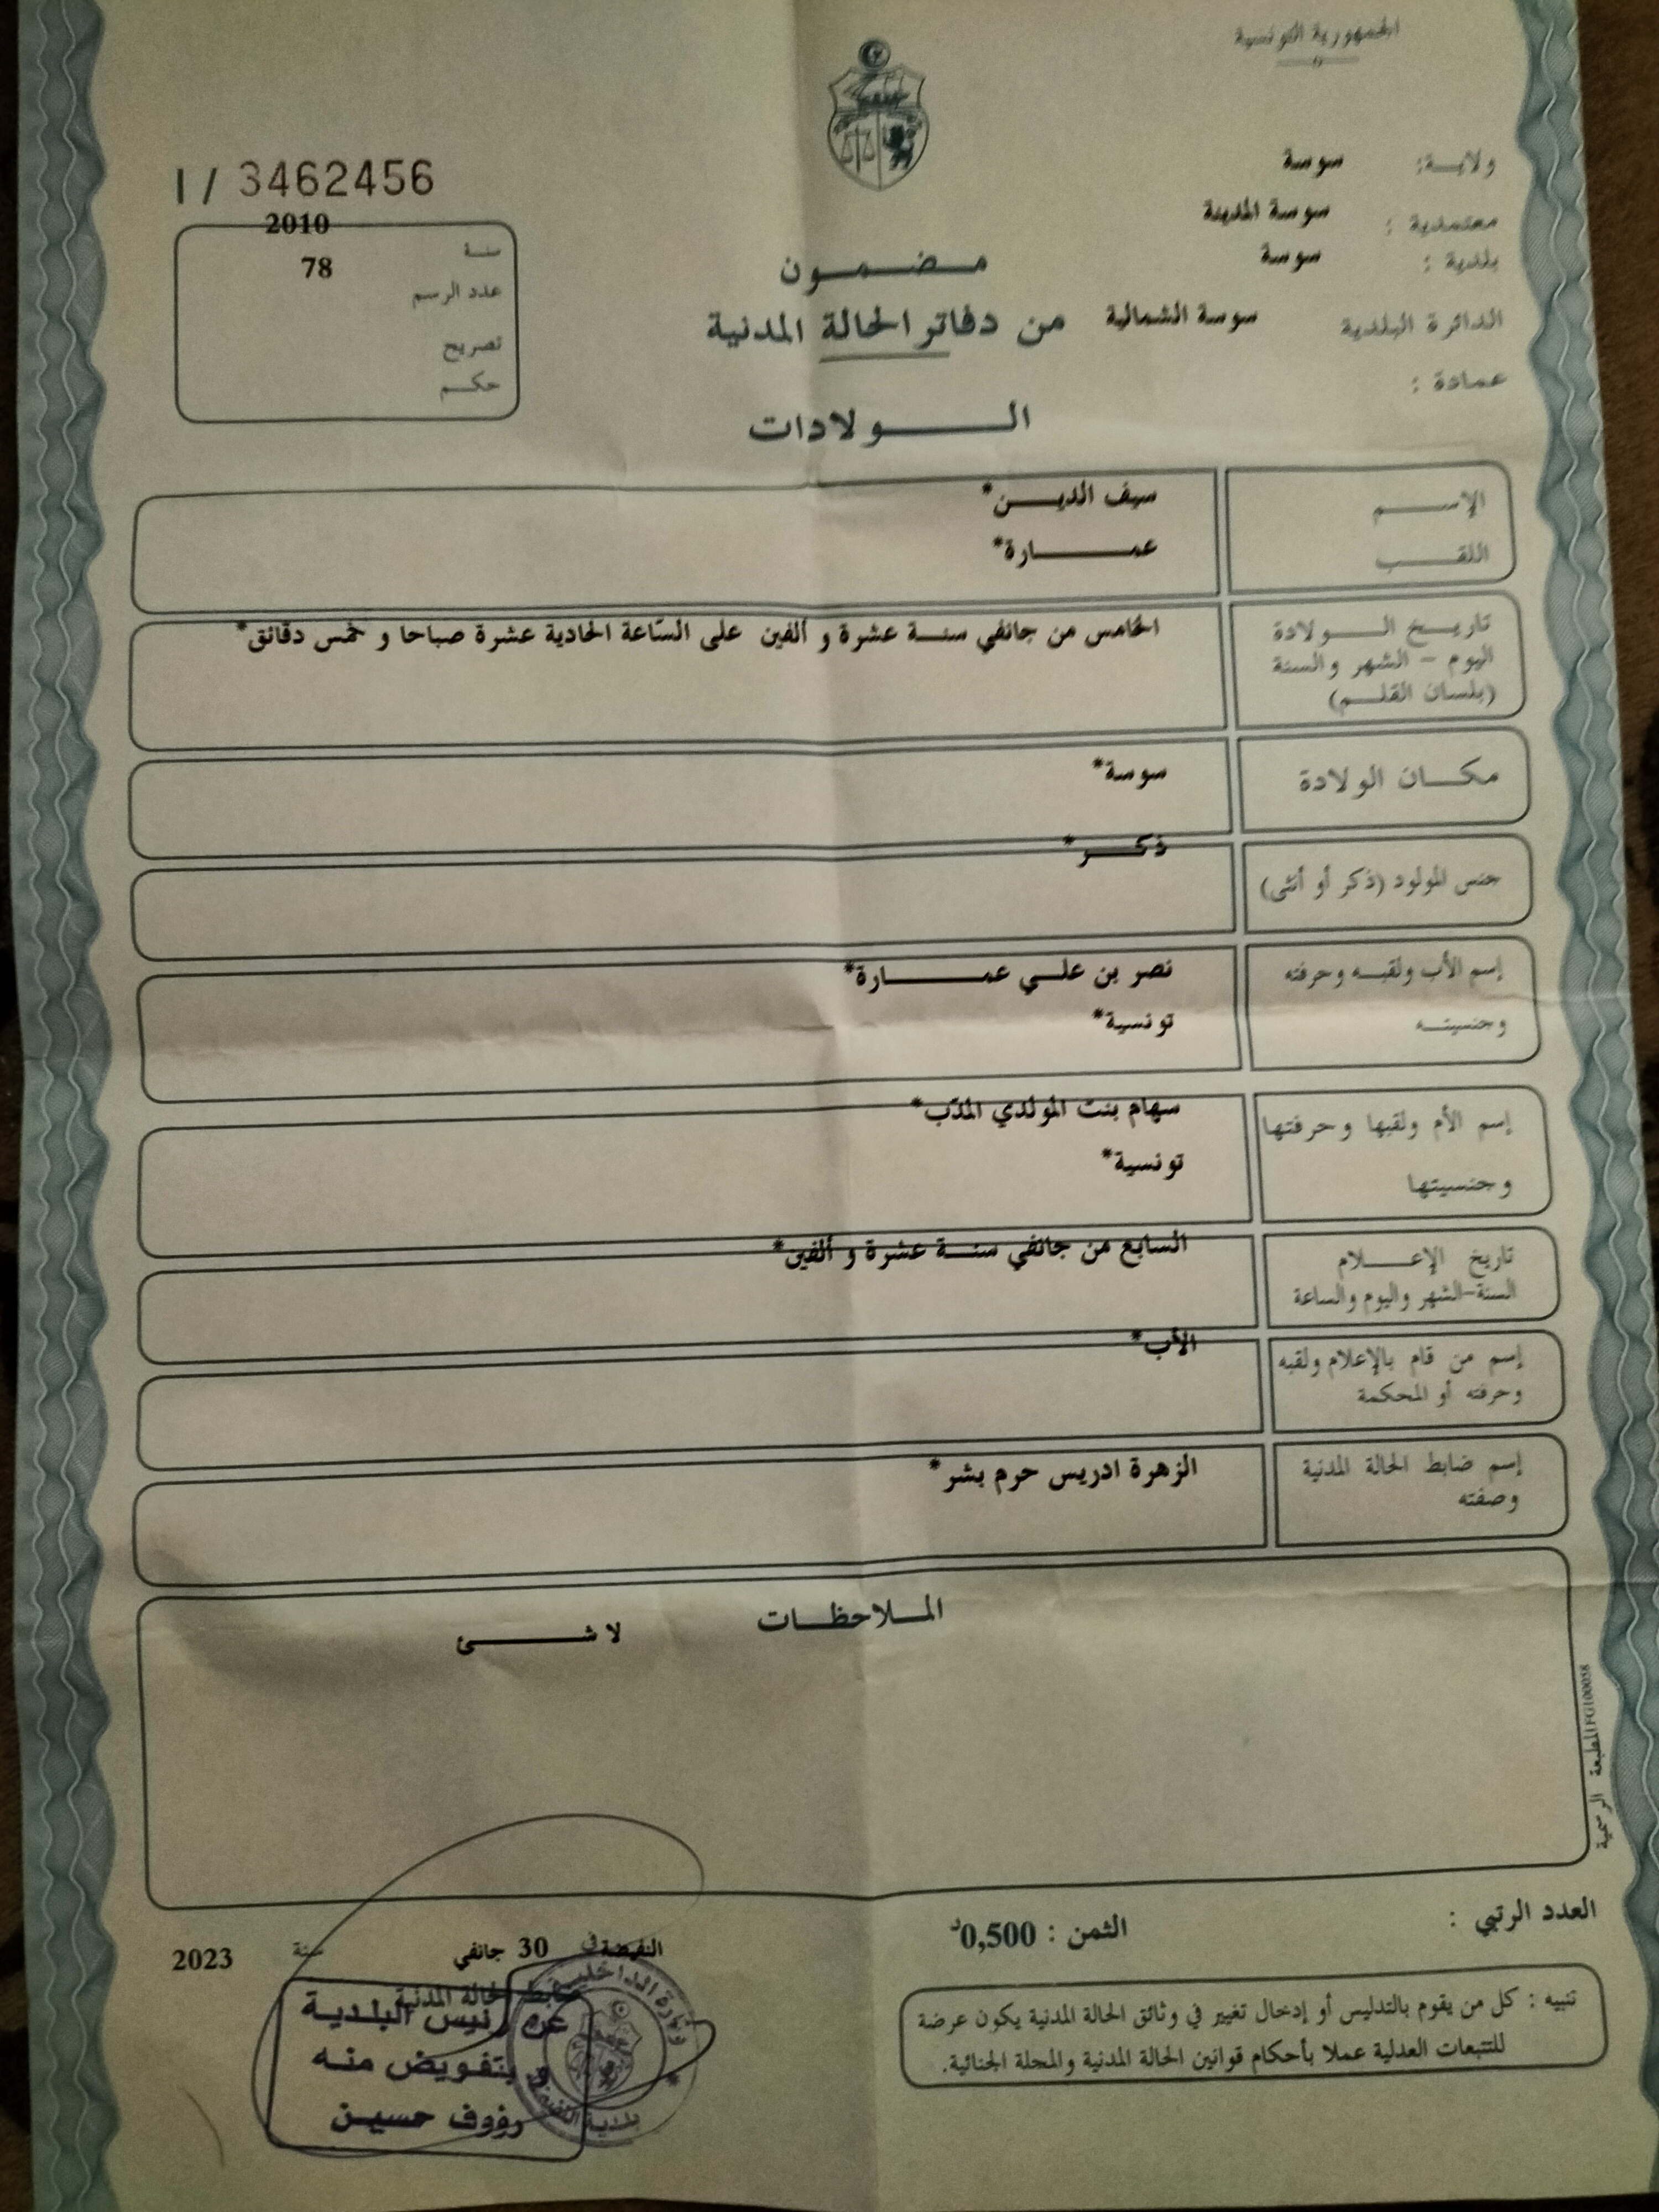 الجمهورية التونسية
I / 3462456
ولايــة: سوسة
معتمدية : سوسة المدينة
بلدية : سوسة
الدائرة البلدية سوسة الشمالية
عمادة :
سنة 2010
عدد الرسم 78
تصريح
حكم
مضمون
من دفاتر الحالة المدنية
الولادات
الإسم سيف الدين*
اللقب عمارة*
تاريخ الولادة الخامس من جانفي سنة عشرة و ألفين على السّاعة الحادية عشرة صباحا و خمس دقائق*
اليوم - الشهر والسنة
(بلسان القلم)
مكان الولادة سوسة*
جنس المولود (ذكر أو أنثى) ذكر*
إسم الأب ولقبه وحرفته نصر بن علي عمارة*
وجنسيته تونسية*
إسم الأم ولقبها وحرفتها سهام بنت المولدي المدّب*
وجنسيتها تونسية*
تاريخ الإعلام السابع من جانفي سنة عشرة و ألفين*
السنة-الشهر واليوم والساعة
إسم من قام بالإعلام ولقبه الأب*
وحرفته أو المحكمة
إسم ضابط الحالة المدنية الزهرة ادريس حرم بشر*
وصفته
الملاحظات
لا شئ
المطبعة الرسمية FG100058
العدد الرتبي :
الثمن : 0,500د
النفيضة في 30 جانفي سنة 2023
ضابط الحالة المدنية
عن رئيس البلدية
و بتفويض منه
رؤوف حسين
وزارة الداخلية
بلدية النفيضة
تنبيه : كل من يقوم بالتدليس أو إدخال تغيير في وثائق الحالة المدنية يكون عرضة
للتتبعات العدلية عملا بأحكام قوانين الحالة المدنية والمجلة الجنائية.